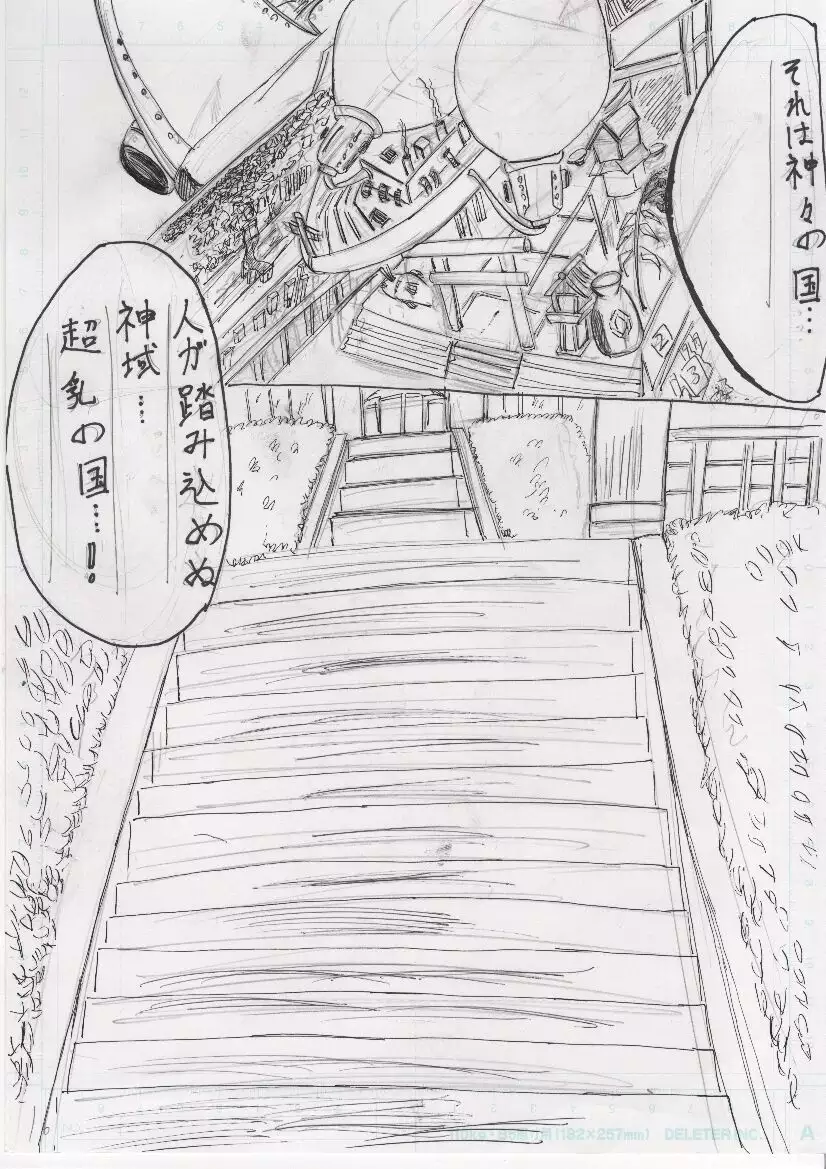 それは神々の国…
人が踏み込めぬ
神域…
超乳の国…!
B5原寸用(182×257mm) DELETER INC.
A